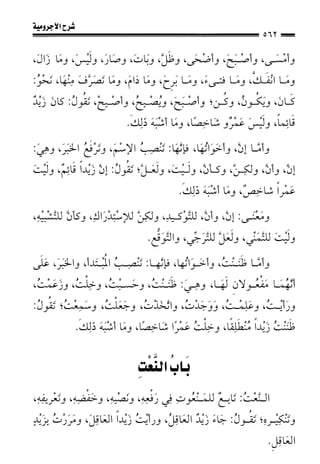 شرح الآجرومية
٥٦٢
وَأَمْسَـى، وَأَصْبَحَ، وَأَضْحَى، وَظَلَّ، وَبَاتَ، وَصَارَ، وَلَيْسَ، وَمَا زَالَ،
وَمَـا انْفَكَّ، وَمَـا فَتـىءَ، وَمَـا بَرِحَ، وَمَا دَامَ، وَمَا تَصَرَّفَ مِنْهَا، نَحْوُ:
كَـانَ، وَيَكُـونُ، وَكُـنْ؛ وَأَصْبَحَ، وَيُصْبِـحُ، وَأَصْبِـحْ، تَقُولُ: كانَ زَيْدٌ
قَائِماً، وَلَيْسَ عَمْرٌو شَاخِصًا، وَمَا أَشْبَهَ ذلِكَ.
وَأَمَّـا إِنَّ وَأَخَوَاتُهَا، فَإِنَّهَا: تَنْصِبُ الاِسْمَ، وَتَرْفَعُ الخَبَرَ، وَهِيَ:
إِنَّ، وَأَنَّ، وَلكِـنَّ، وَكـأَنَّ، وَلَيْـتَ، وَلَعَـلَّ؛ تَقُولُ: إِنَّ زَيْداً قَائِمٌ، وَلَيْتَ
عَمْراً شَاخِصٌ، وَمَا أَشْبَهَ ذَلِكَ.
وَمَعْنَـى: إِنَّ، وَأَنَّ، لِلتَّوْكـيدِ، وَلكِنَّ لِلاِسْتِدْرَاكِ، وَكأَنَّ لِلتَّشْبِيْهِ،
وَلَيْتَ لِلتَّمَنِّي، وَلَعَلَّ لِلتَّرَجِّي، وَالتَّوَقُّعِ.
وَأَمَّـا ظَنَنْـتُ، وَأَخـوَاتُها، فَإِنَّهـا: تَنْصِـبُ المُبْتَـدأَ، وَالخَبَرَ، عَلَى
أَنَّهُمَـا مَفْعُـولانِ لَهَـا، وَهِـيَ: ظَنَنْـتُ، وَحَسِبْـتُ، وَخِلْـتُ، وَزَعَمْتُ،
وَرَأَيْـتُ، وَعَلِمْـتُ، وَوَجَدْتُ، وَاتَّخَذْتُ، وَجَعَلْتُ، وَسَمِعْتُ؛ تَقُولُ:
ظَنَنْتُ زَيْداً مُنْطَلِقًا، وَخِلْتُ عَمْرًا شَاخِصًا، وَمَا أَشْبَهَ ذَلِكَ.
بَابُ النَّعْتِ
النَّـعْتُ: تَابِـعٌ لِلْمَـنْعُوتِ فِي رَفْعِهِ، وَنَصْبِهِ، وَخَفْضِهِ، وَتَعْرِيفِهِ،
وَتَنْكِيْـرِهِ؛ تَقُـولُ: جَاءَ زَيْدٌ العَاقِلُ، وَرأَيْتُ زَيْداً العَاقِلَ، وَمَرَرْتُ بِزَيْدٍ
العَاقِلِ.